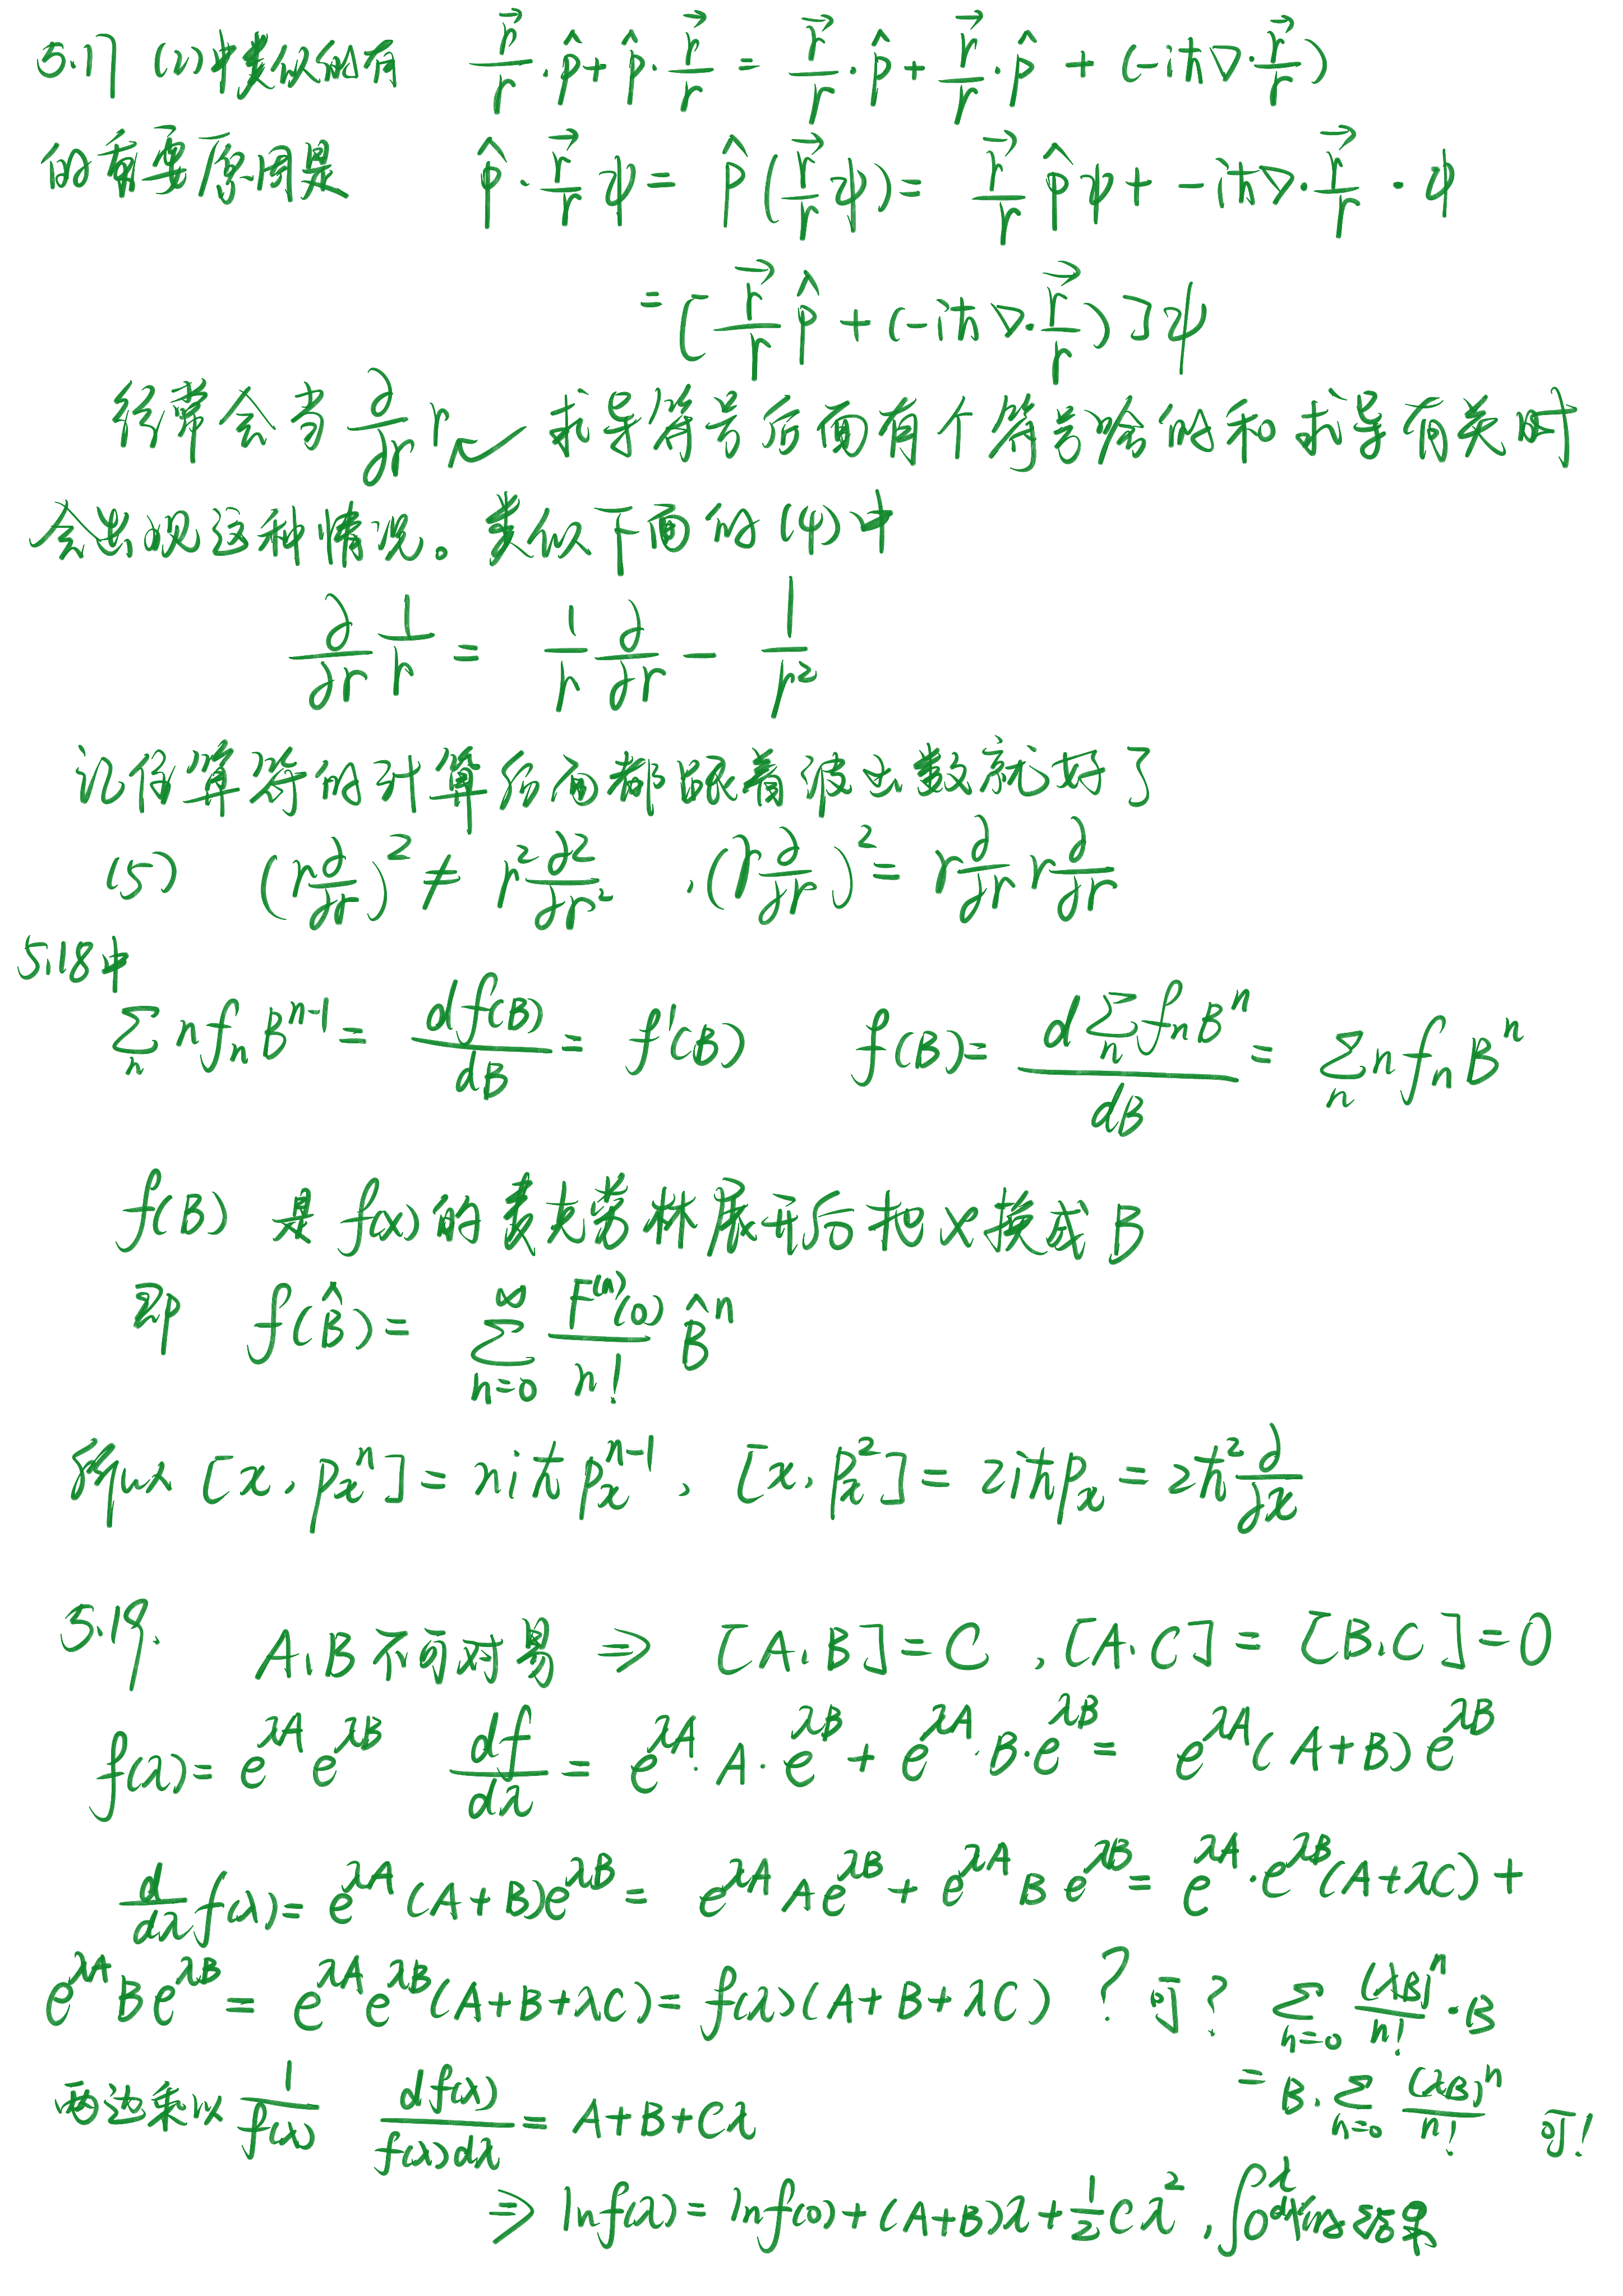 5.17 (2)中类似的有 $\frac{\vec{r}}{r}\cdot\hat{p}+\hat{p}\cdot\frac{\vec{r}}{r}=\frac{\vec{r}}{r}\cdot\hat{p}+\frac{\vec{r}}{r}\cdot\hat{p}+(-i\hbar\nabla\cdot\frac{\vec{r}}{r})$
的重要原因是 $\hat{p}\cdot\frac{\vec{r}}{r}\psi=\hat{p}(\frac{\vec{r}}{r}\psi)=\frac{\vec{r}}{r}\hat{p}\psi+-i\hbar\nabla\cdot\frac{\vec{r}}{r}\cdot\psi$
$=[\frac{\vec{r}}{r}\hat{p}+(-i\hbar\nabla\cdot\frac{\vec{r}}{r})]\psi$
经常会当 $\frac{\partial}{\partial r}r$ 求导符号后面有个符号啥的和求导有关时
会出现这种情况。类似下面的(4)中
$\frac{\partial}{\partial r}\frac{1}{r}=\frac{1}{r}\frac{\partial}{\partial r}-\frac{1}{r^2}$
记住算符的计算后面都跟着波函数就好了
(5) $(r\frac{\partial}{\partial r})^2\neq r^2\frac{\partial^2}{\partial r^2}$ , $(r\frac{\partial}{\partial r})^2=r\frac{\partial}{\partial r}r\frac{\partial}{\partial r}$
5.18中
$\sum_n nf_nB^{n-1}=\frac{df(B)}{dB}=f'(B)$ $f(B)=\frac{d\sum_n f_nB^n}{dB}=\sum_n nf_nB^n$
f(B) 是 f(x) 的麦克劳林展开后把x换成B
即 $f(\hat{B})=\sum_{n=0}^{\infty}\frac{F^{(n)}(0)}{n!}\hat{B}^n$
所以 $[x,p_x^n]=ni\hbar p_x^{n-1}$、$[x,p_x^2]=2i\hbar p_x=2\hbar^2\frac{\partial}{\partial x}$
5.19. A,B不可对易 ⇒ [A,B]=C , [A,C]=[B,C]=0
$f(\lambda)=e^{\lambda A}e^{\lambda B}$ $\frac{df}{d\lambda}=e^{\lambda A}\cdot A\cdot e^{\lambda B}+e^{\lambda A}\cdot B\cdot e^{\lambda B}=e^{\lambda A}(A+B)e^{\lambda B}$
$\frac{d}{d\lambda}f(\lambda)=e^{\lambda A}(A+B)e^{\lambda B}=e^{\lambda A}Ae^{\lambda B}+e^{\lambda A}Be^{\lambda B}=e^{\lambda A}\cdot e^{\lambda B}(A+\lambda C)+$
$e^{\lambda A}Be^{\lambda B}=e^{\lambda A}e^{\lambda B}(A+B+\lambda C)=f(\lambda)(A+B+\lambda C)$ ? 可? $\sum_{n=0}\frac{(\lambda B)^n}{n!}\cdot B$
$=B\cdot\sum_{n=0}\frac{(\lambda B)^n}{n!}$ 可!
两边乘以 $\frac{1}{f(\lambda)}$ $\frac{df(\lambda)}{f(\lambda)d\lambda}=A+B+C\lambda$
⇒ $\ln f(\lambda)=\ln f(0)+(A+B)\lambda+\frac{1}{2}C\lambda^2$ , $\int_0^{\lambda}d\lambda$的结果